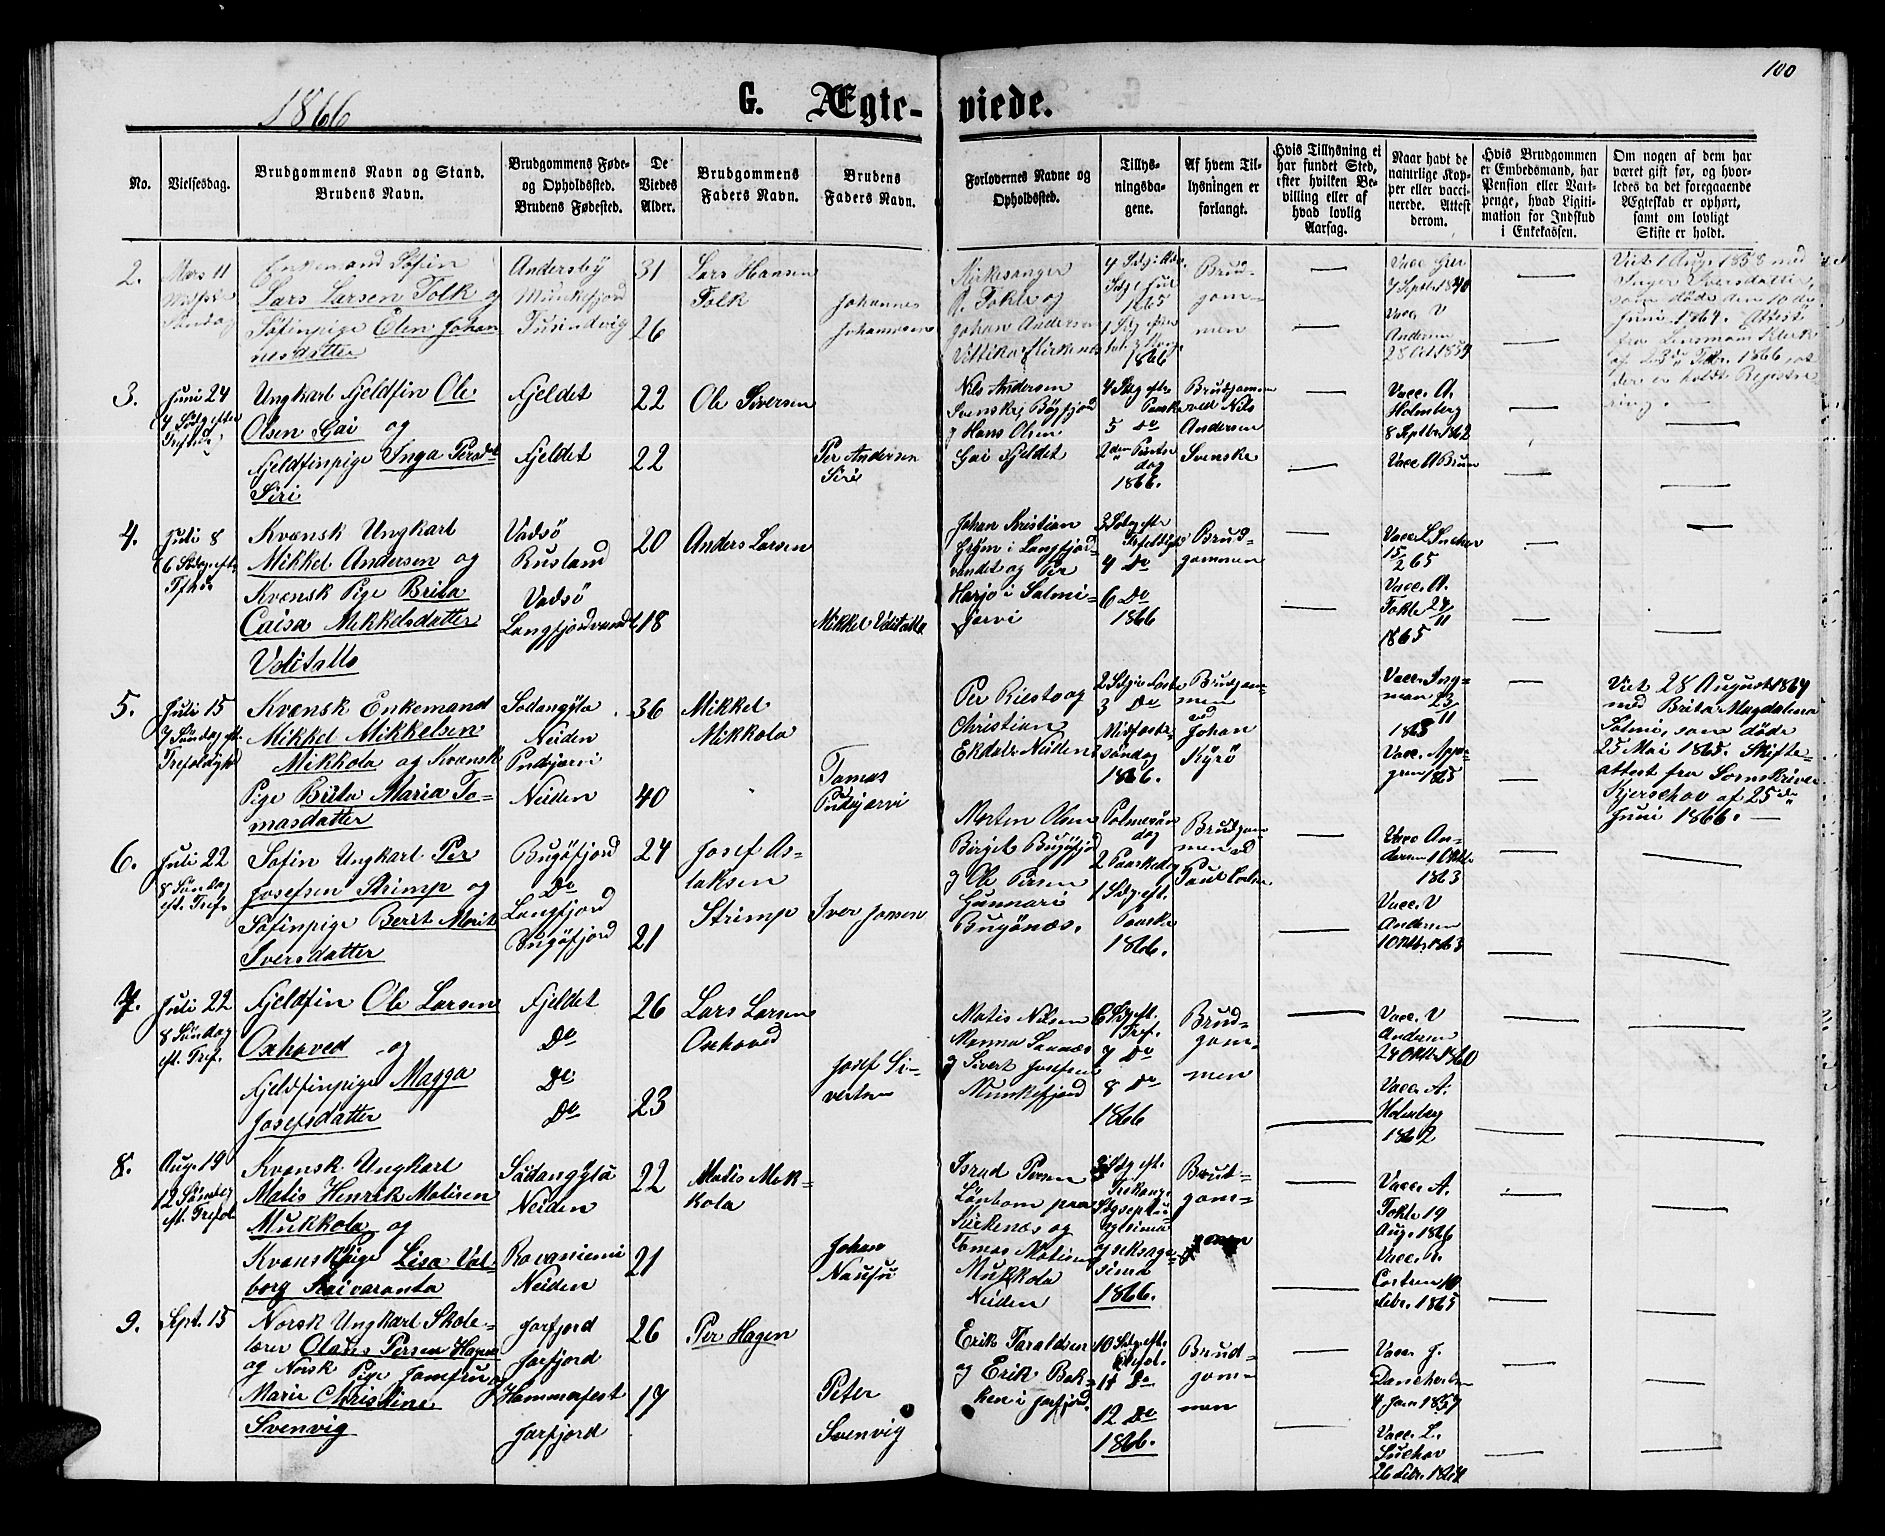 100
1866
G. Ægte-viede.
No.
Vielsesdag.
Brudgommens Navn og Stand.
Brudens Navn.
Brudgommens Føde-
og Opholdssted.
Brudens Fødested.
De
Viedes
Alder.
Brudgommens
Faders Navn.
Brudens
Faders Navn.
Forlovernes Navne og
Opholdssted.
Tillys-
ningsda-
gene.
Af hvem Til-
lysningen er
forlangt.
Hvis Tillysning ei
har fundet Sted,
efter hvilken Be-
villing eller af
hvad lovlig
Aarsag.
Naar havt de
naturlige Kop-
per eller vacci-
nerede. Attest
derom.
Hvis Brudgommen
er Embedsmand, har
Pension eller Vart-
penge, hvad Ligiti-
mation for Indskud
i Enkekassen.
Om nogen af dem har
været gift før, og hvor-
ledes da det foregaaende
Ægteskab er ophørt,
samt om lovligt
Skifte er holdt.
2.
Mars 11
Enkemand Søfin
Lars Larsen Folk og
Søfinpige Elen Johan-
nesdatter
Andersby
Munkefjord
31
26
Lars Hansen
Folk
Johannes
Johannesen
Kirkesanger
A. Fokle og
Johan Andersen
1866
Brud-
gom-
men
Viet 1 Aug. 1858 med
Inger Iversdatter,
som døde den 10 de
Juni 1864. Attest
fra Lensmann Klerk
3.
Juni 24
4 Sødg efter
Ungkarl Fjeldfin Ole
Olsen Gai og
Fjeldfinpige Inga Persdtr
Siri
Fjeldet
Fjeldet
22
22
Ole Siversen
Per Andersen
Siri
Nils Andersen
Svenske Bøgfjord
og Hans Olsen
Gai Fjeldet
5 Do
1866.
Brudgommen
ved Nils
Andersen
Svenske
Vacc. A.
Holmberg
8 Septbr. 1862
Vacc. A Brun
4.
Juli 8
Kvænsk Ungkarl
Mikkel Andersen og
Kvænsk Pige Brita
Caisa Mikkelsdatter
Vadsø
Rusland
Vadsø
Langfjordvandet
20
18
Anders Larsen
Johan Kristian
Per
Harjo i Salmi-
jærvi
4 Do
6 Do
1866
Brud-
gommen
15/2 65
Vacc. A.
Fokle 24/11
1865
5.
Juli 15
7 Søndag eft.
Kvænsk Enkemand
Mikkel Mikkelsen
Mikkola og Kvænsk
Pige Brita Maria To-
masdatter
Sodangyla
Neiden
Pudsjarvi
Neiden
36
40
Mikkel
Mikkola
Tomas
Pudsjarvi
Per Riesto og
Christian
Ekdale Neiden
3 Do
Midfaste-
søndag
1866.
Brudgom-
men
ved
Johan
Kyrø
Vacc. Ing-
man 23/11
1865
Viet 28 August 1864
med Brita Magdalena
Salmi, som døde
25 Mai 1865. Skifte-
attest fra Sorenskriver
Kjerschov af 25 de
Juni 1866.
6.
Juli 22
8 Søndag
eft. Tref.
Søfin Ungkarl Per
Josefsen Strimp og
Søfinpige Berit Marit
Iversdatter
Bugøfjord
Do
Langfjord
Bugøfjord
24
21
Josef As-
laksen
Strimp
Iver Jonsen
Morten Olsen
Birget Bugøfjord
og Ole Persen
Gunnari
Bugønæs.
Palmesøn
dag
2 Paaskedag
1 Sdg. eft.
Paaske
1866.
Brudgom
men ved
Vacc. An-
dersen 1 Oktbr.
1863
Vacc. V
Andersen
1 Oktbr. 1863
7.
Juli 22
8 Søndag
eft. Tref.
Fjeldfin Ole Larsen
Oxhoved og
Fjeldfinpige Magga
Josefsdatter
Fjeldet
Do
Do
Do
26
23
Lars Larsen
Oxhoved
Josef Si-
versen
Matis Nilsen
Manna Sannæs
og Sivert Josefsen
Munkefjord
6 Sdg eft.
Tref.
7 Do
8 Do
1866
Brud-
gom-
men
Vacc. V
Andersen
24 Oktbr. 1860
Vacc. A.
Holmberg
1862
8.
Aug. 19
12 Søndag
eft. Trefol.
Kvænsk Ungkarl
Matis Henrik Matisen
Mukkola og
Kvænsk Pige Lisa Val-
borg Kaivaranta
Sådangyla
Neiden
Rovaniemi
Neiden
22
21
Matis Muk-
kola
Johan
Nausu
Israel Persen
Lønbom paa
Kirkenæs og
Tomas Matisen
Mukkola
Neiden
1866.
Brut-
gom-
Vacc. A.
Fokle 19
Aug. 1866
Vacc. A.
Castren 10
debr. 1865
9.
Sept. 15
Norsk Ungkarl Skole-
lærer Olaus Persen Hagen
og Norsk Pige Jomfru
Marie Christine
Svenvig
Jarfjord
Jarfjord
Hammerfest
Jarfjord
26
17
Per Hagen
Peter
Svenvig
Erik Taraldsen
og Erik Bak-
ken i Jarfjord.
10 Sdg eft.
Trefol.
11 Do
12 Do
1866.
Brud-
gom-
men
Vacc. J.
4 Jan 1857
Vacc. L.
Suchov